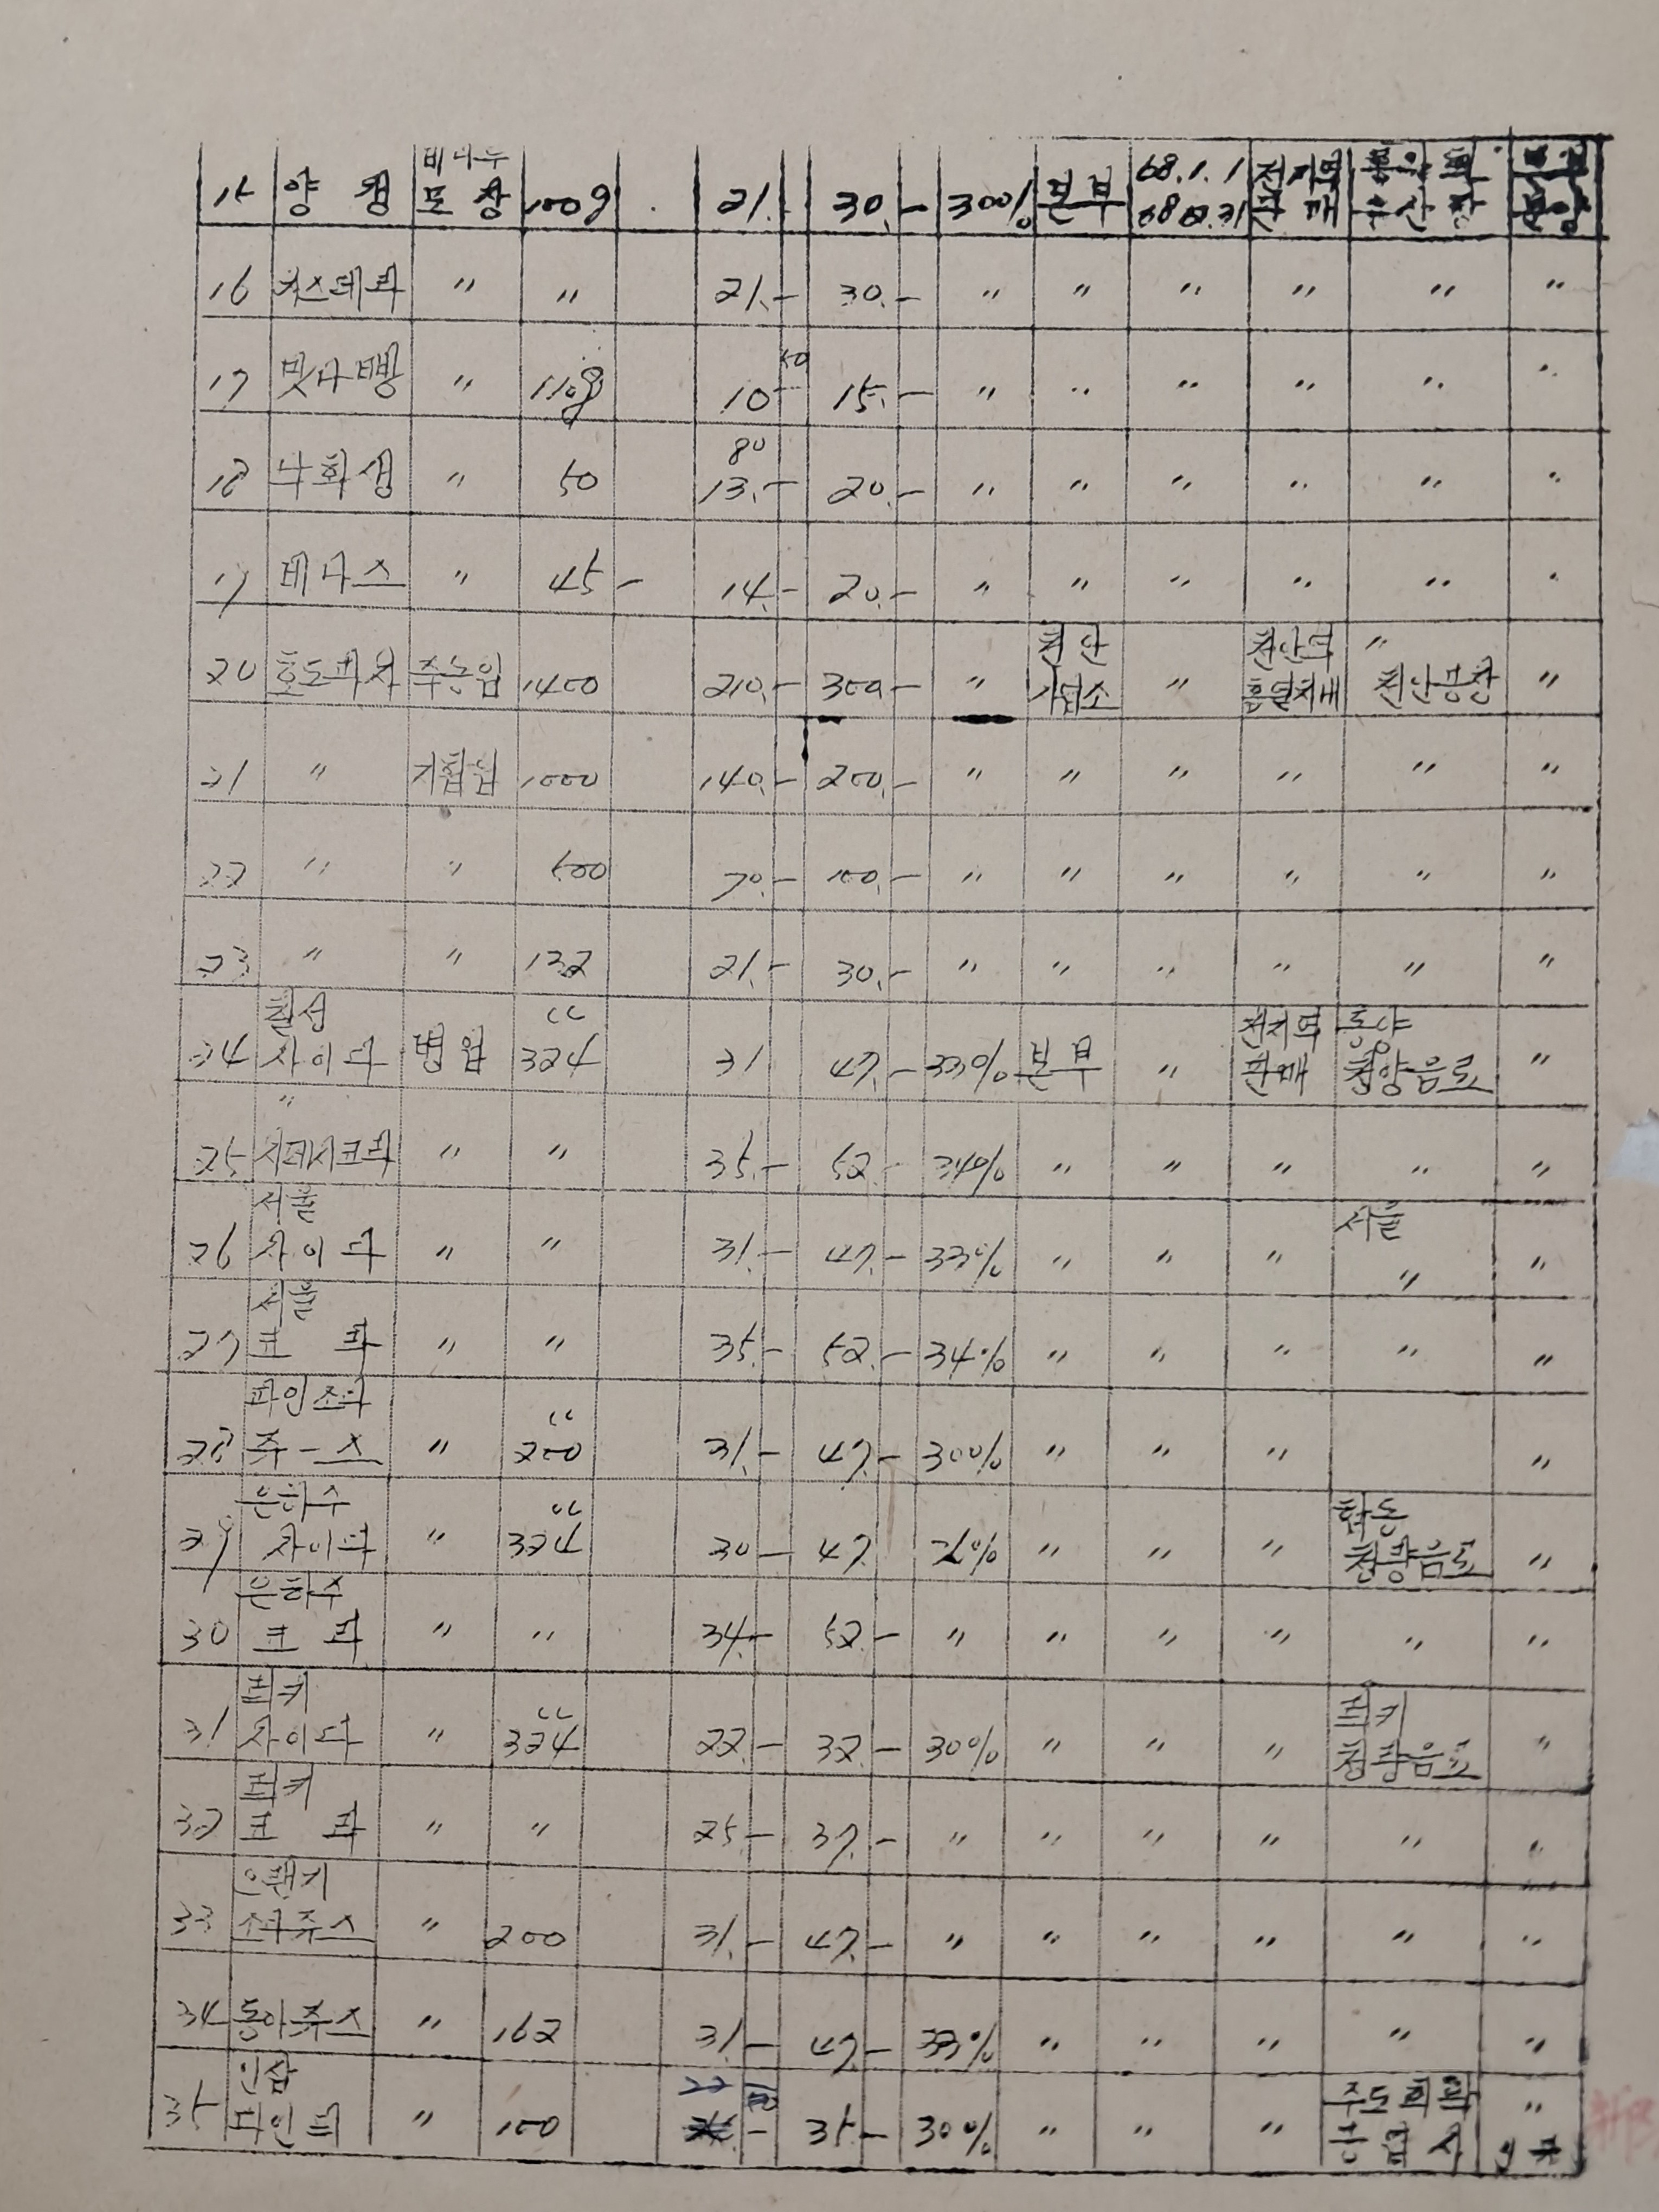 15 양갱 비니루 포장 100g 21.- 30.- 30% 본부 68.1.1 전지역 판매
16 카스테라 〃 〃 21.- 30.- 〃 〃 〃 〃 〃 〃
17 맛나빵 〃 110g 10 50 15.- 〃 〃 〃 〃 〃 〃
18 낙화생 〃 50 13.- 80 20.- 〃 〃 〃 〃 〃 〃
19 비나스 〃 45- 14.- 20.- 〃 〃 〃 〃 〃 〃
20 호도과자 1400 210.- 300.- 〃 천안 〃 천안역 〃 천안공장 〃
21 〃 1000 140.- 200.- 〃 〃 〃 〃 〃 〃
22 〃 〃 500 70.- 100.- 〃 〃 〃 〃 〃 〃
23 〃 〃 132 21.- 30.- 〃 〃 〃 〃 〃 〃
24 칠성 사이다 병입 324 cc 31 47.- 33% 본부 〃 전지역 판매 동양 청량음료 〃
25 〃 〃 〃 35.- 52- 34% 〃 〃 〃 〃 〃
26 서울 사이다 〃 〃 31.- 47.- 33% 〃 〃 〃 서울 〃 〃
27 서울 코라 〃 〃 35.- 52.- 34% 〃 〃 〃 〃 〃
28 쥬-스 〃 200 cc 31.- 47.- 30% 〃 〃 〃 〃
29 은하수 사이다 〃 324 cc 30- 47 〃 〃 〃 청량음료 〃
30 은하수 코라 〃 〃 34.- 52- 〃 〃 〃 〃 〃 〃
31 럭키 사이다 〃 324 cc 22.- 32- 30% 〃 〃 〃 럭키 청량음료 〃
32 럭키 코라 〃 〃 25- 37.- 〃 〃 〃 〃 〃 〃
33 〃 200 31.- 47.- 〃 〃 〃 〃 〃 〃
34 동아쥬스 〃 162 31- 47.- 33% 〃 〃 〃 〃 〃
35 인삼 〃 100 22 35- 30% 〃 〃 〃 〃